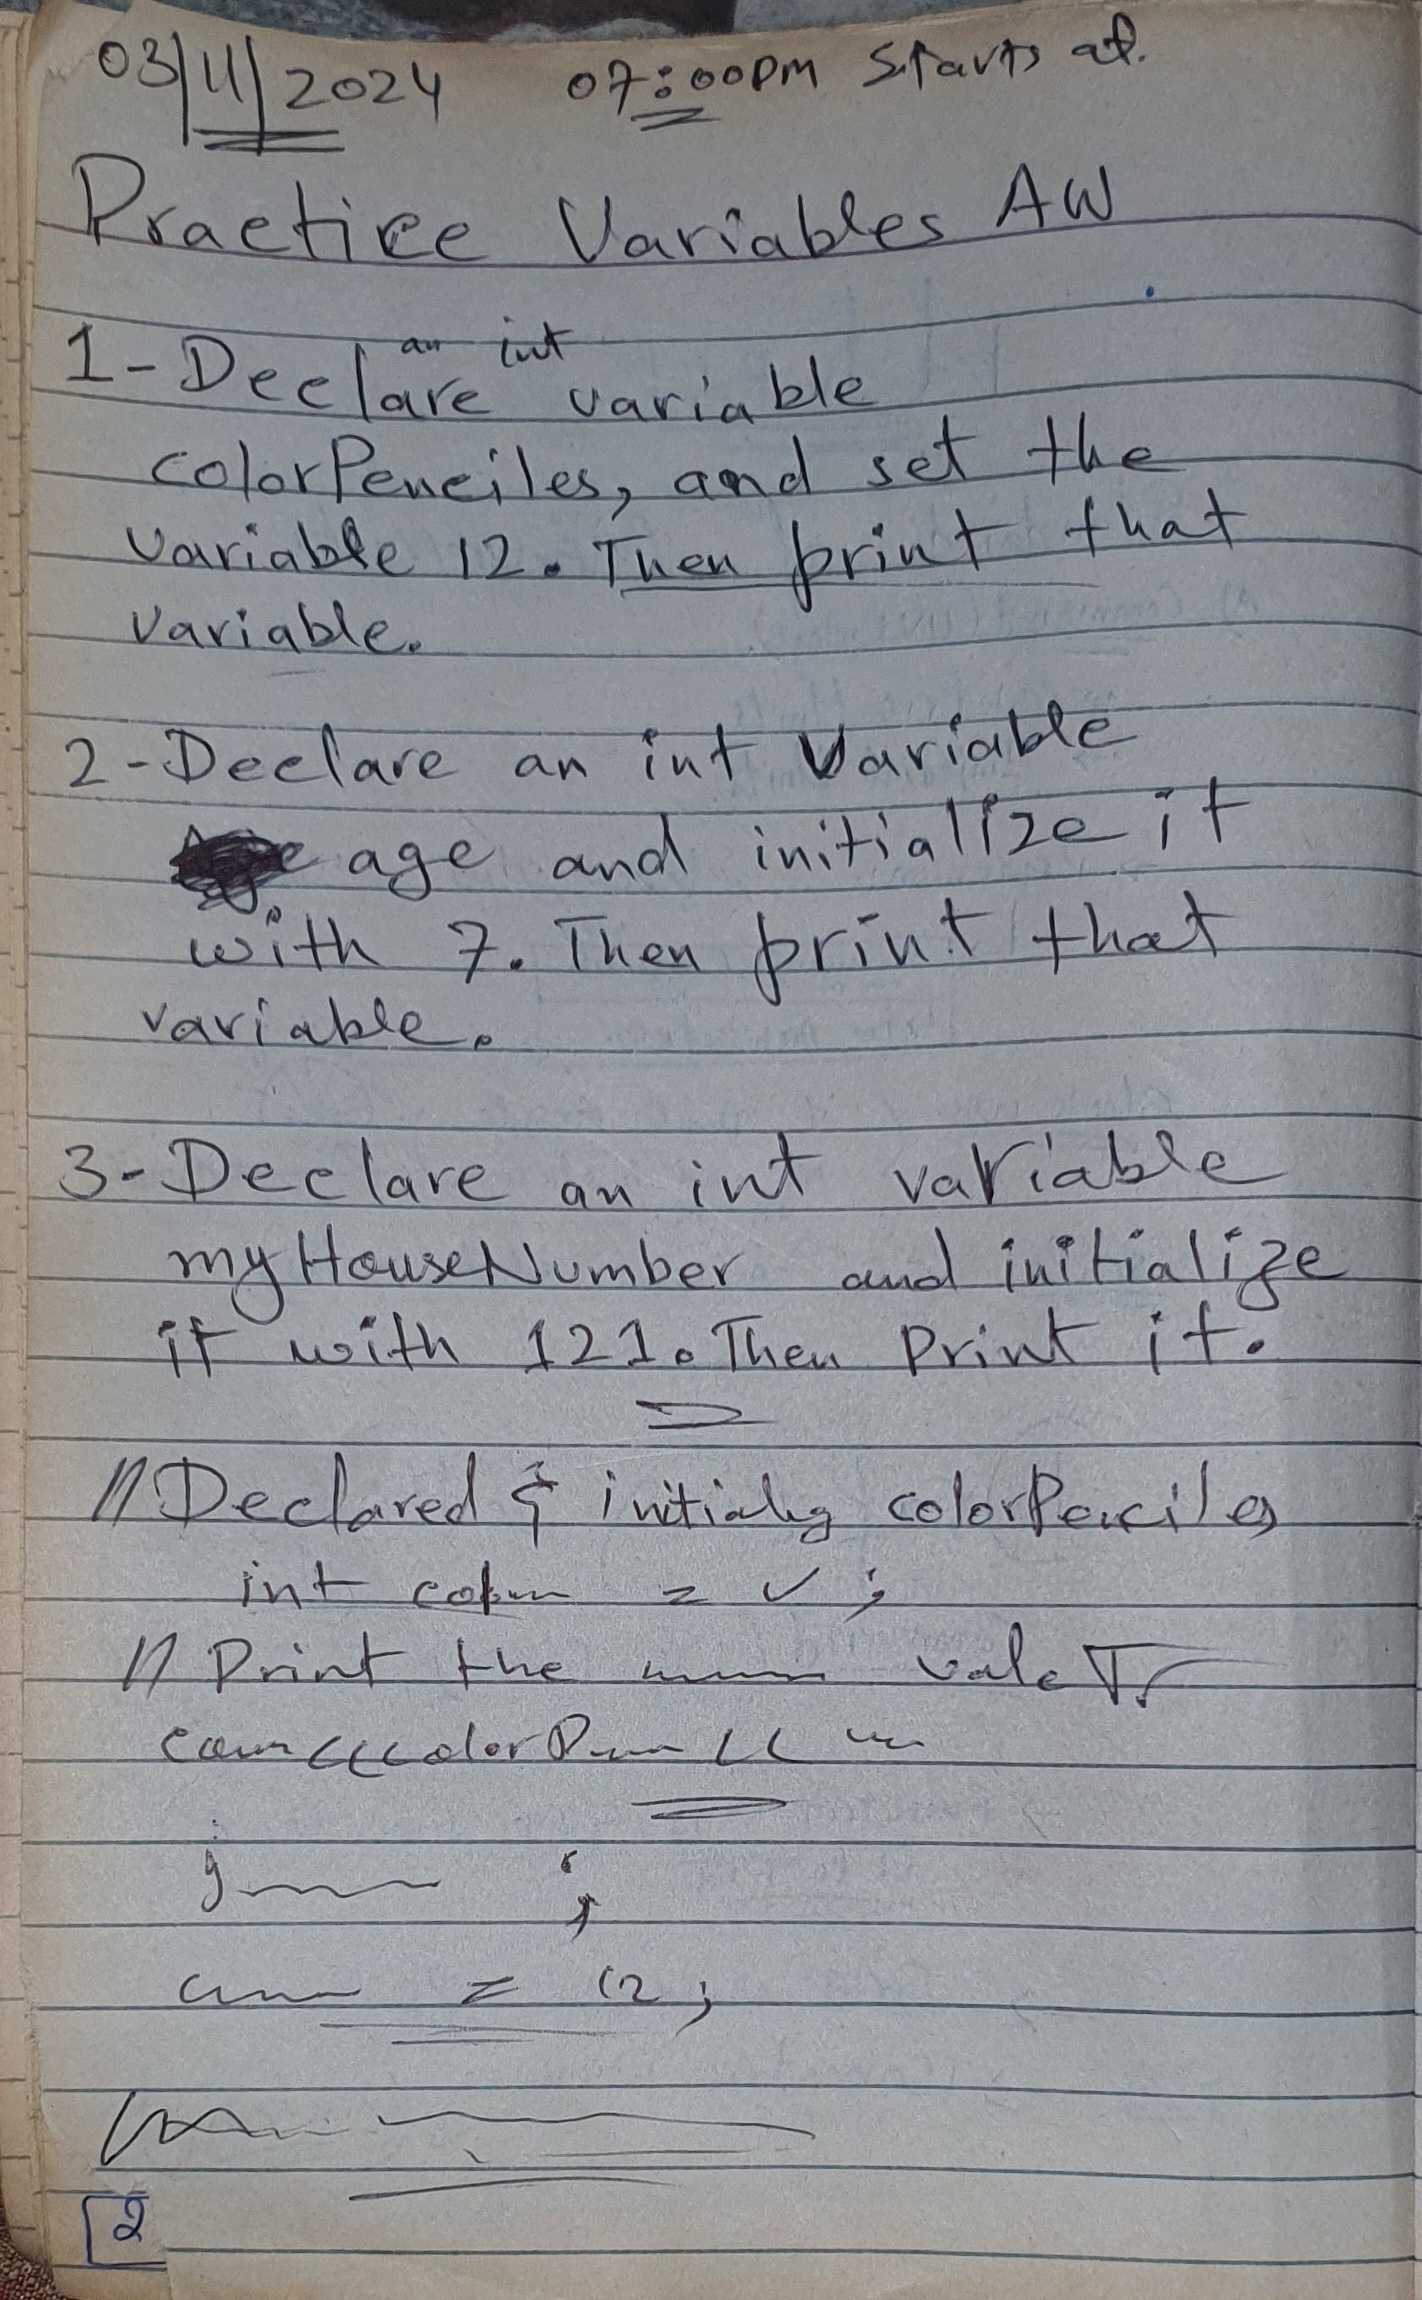 03/11/2024 07:00PM Starts at.
Practice Variables AW
an int
1- Declare variable
colorPenciles, and set the
variable 12. Then print that
variable.
2- Declare an int Variable
age and initialize it
with 7. Then print that
variable.
3- Declare an int variable
myHouseNumber and initialize
it with 121. Then Print it.
// Declared & colorPenciles
int = ✓ ;
// Print the
;
= 12;
2